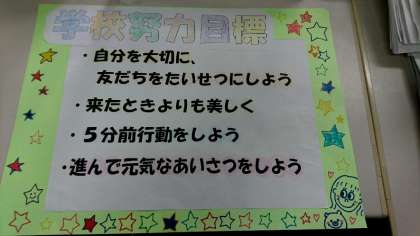 学校努力目標
・自分を大切に、
友だちをたいせつにしよう
・来たときよりも美しく
・５分前行動をしよう
・進んで元気なあいさつをしよう